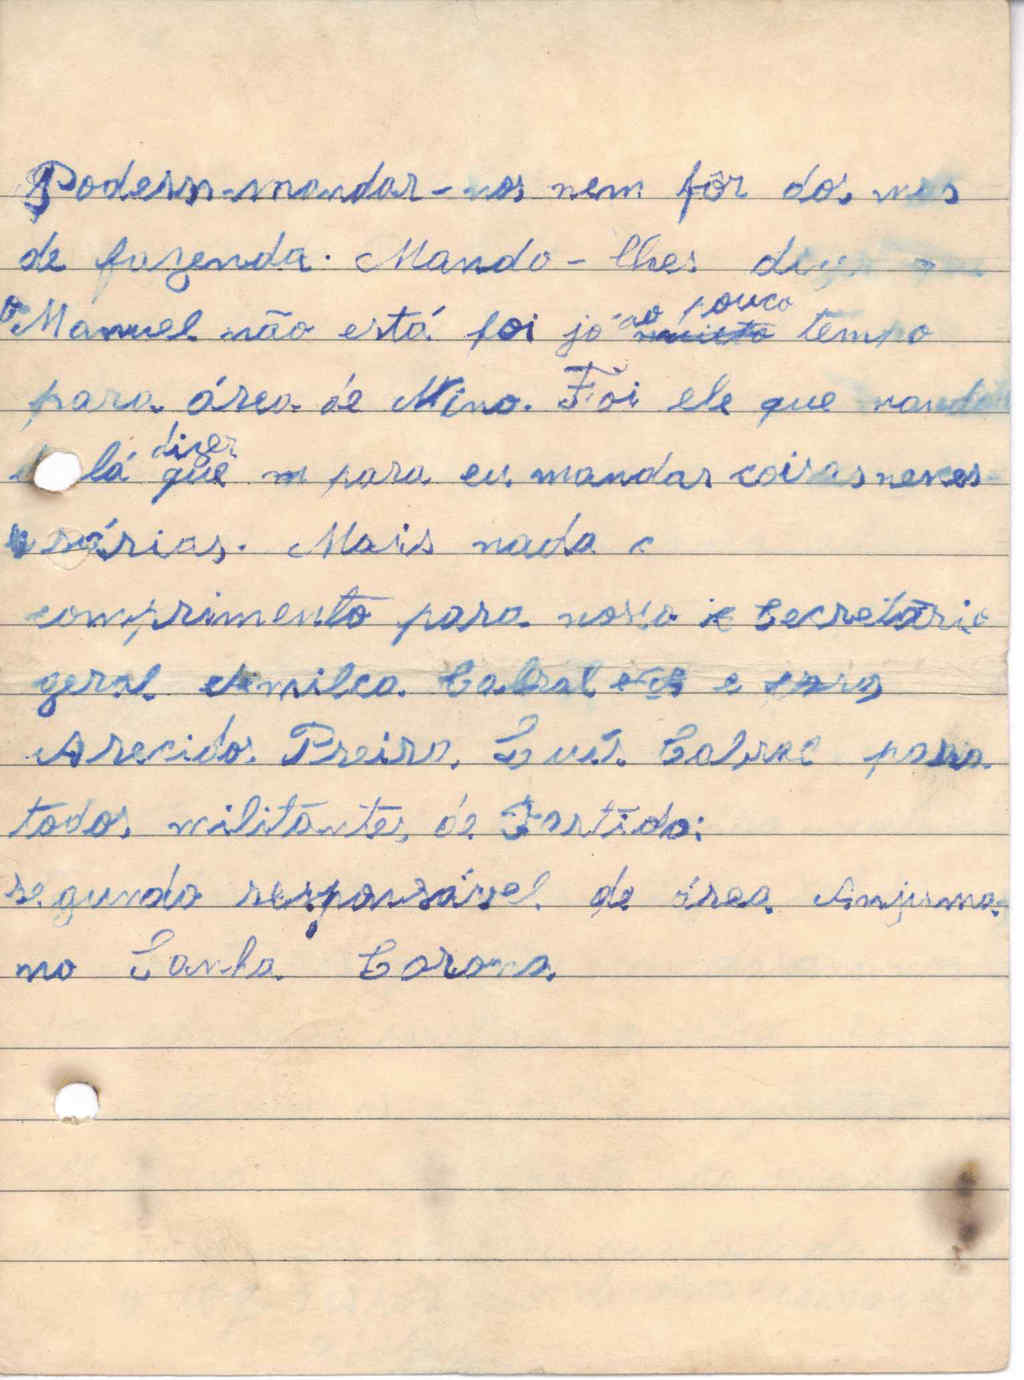 Podem-mandar-nos nem fôr dos
de fazenda. Mando-lhes
o Manuel não está foi já ao pouco muito tempo
para área de Nino. Foi ele que mandou
lá dizer que para eu mandar coisas neces-
sárias. Mais nada
comprimento para nosso Secretário
geral Amilca Cabral e para
Arecidos Preira, Luís Cabral para
todos militantes de Partido:
segundo responsável de área Anjuma-
no Sanha Carama